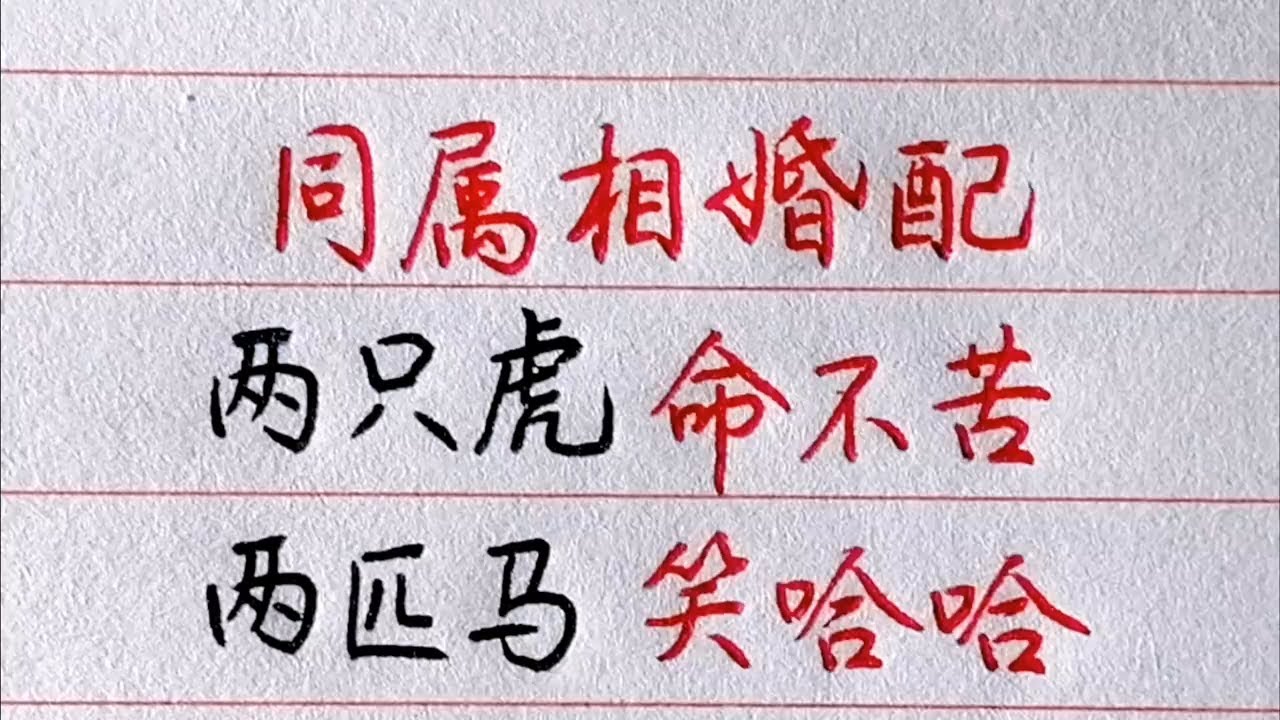 同属相婚配
两只虎 命不苦
两匹马 笑哈哈